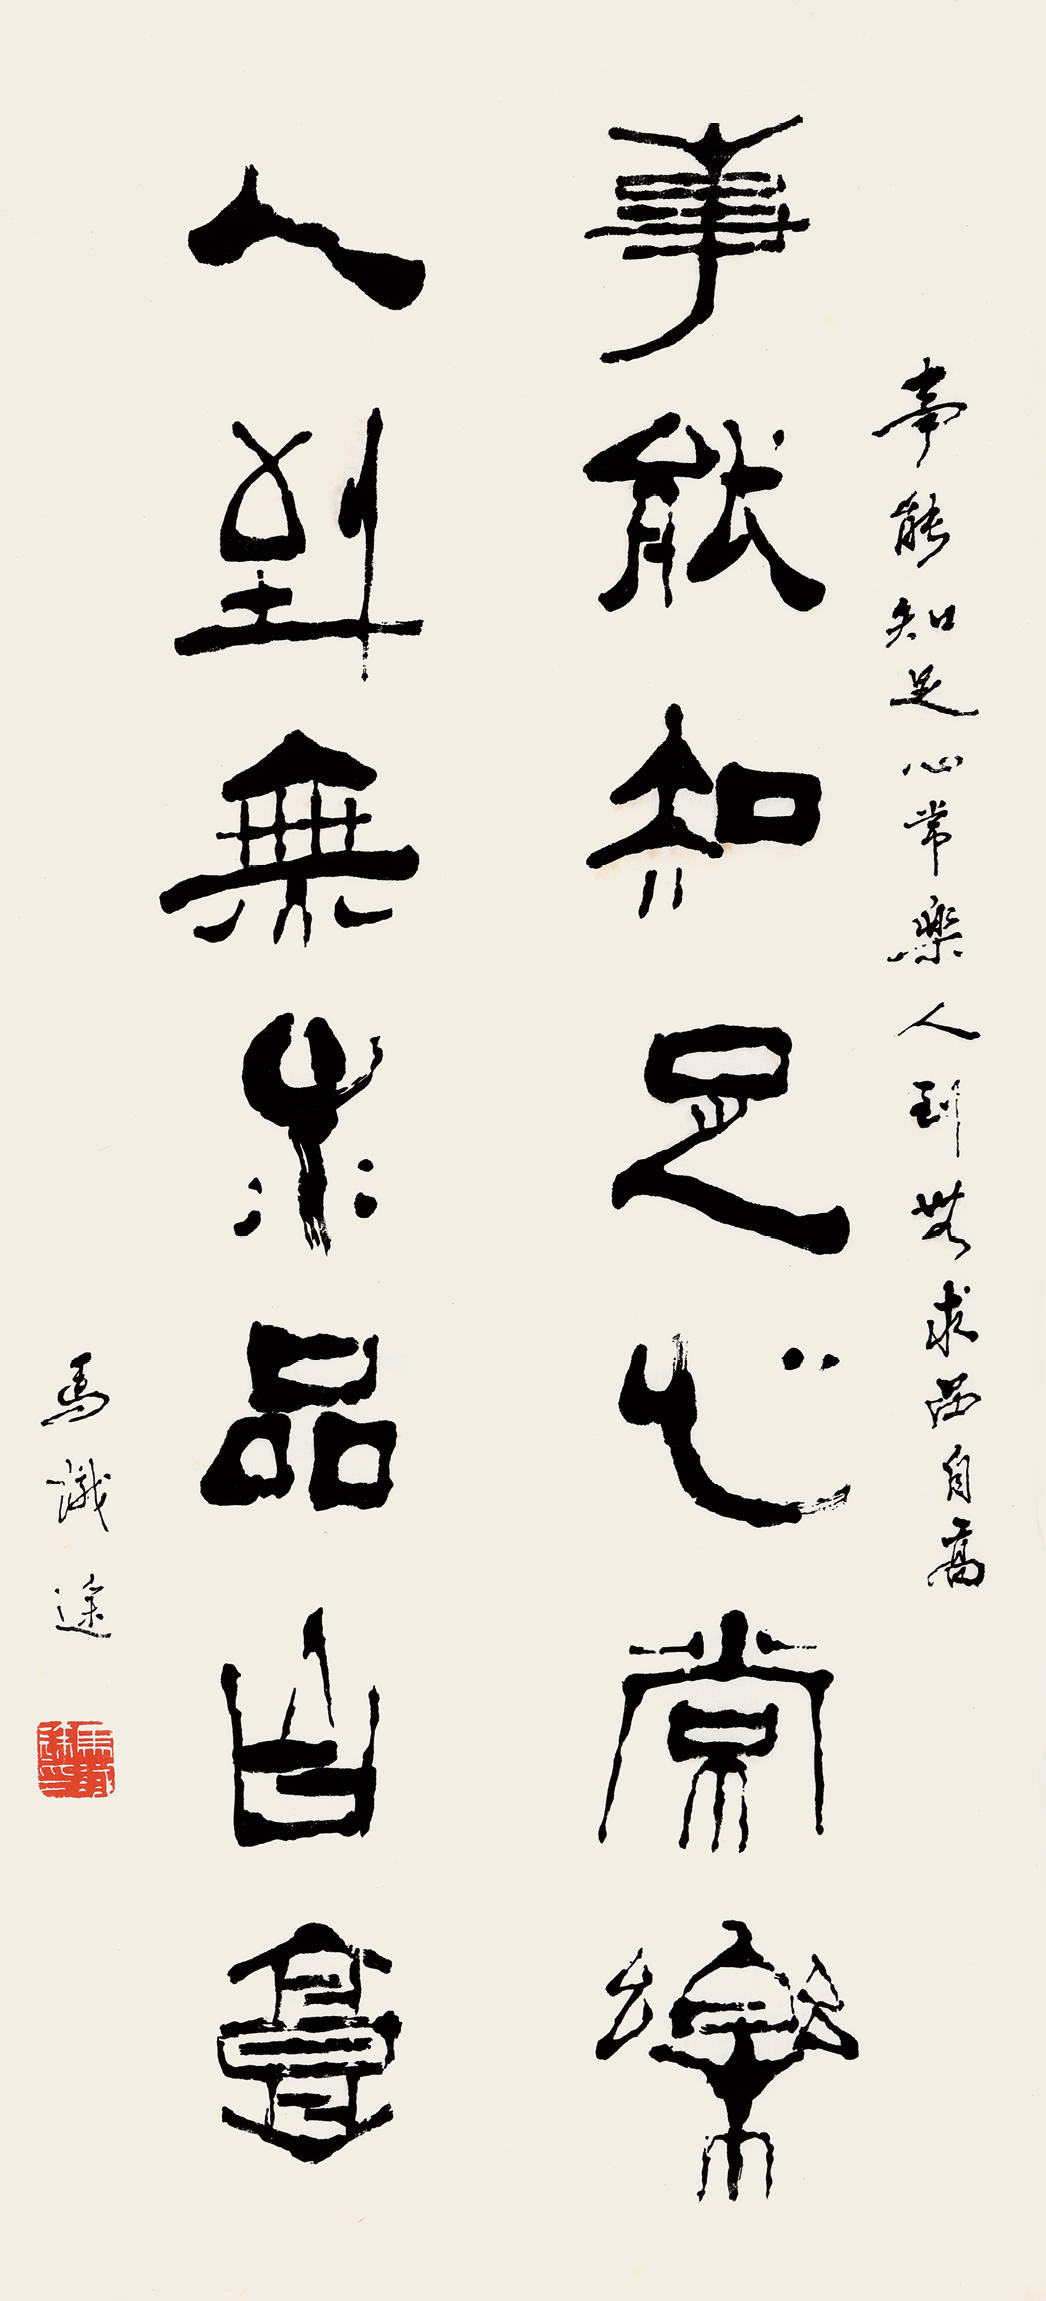 事能知足心常樂人到無求品自高
事能知足心常樂
人到無求品自高
馬識途